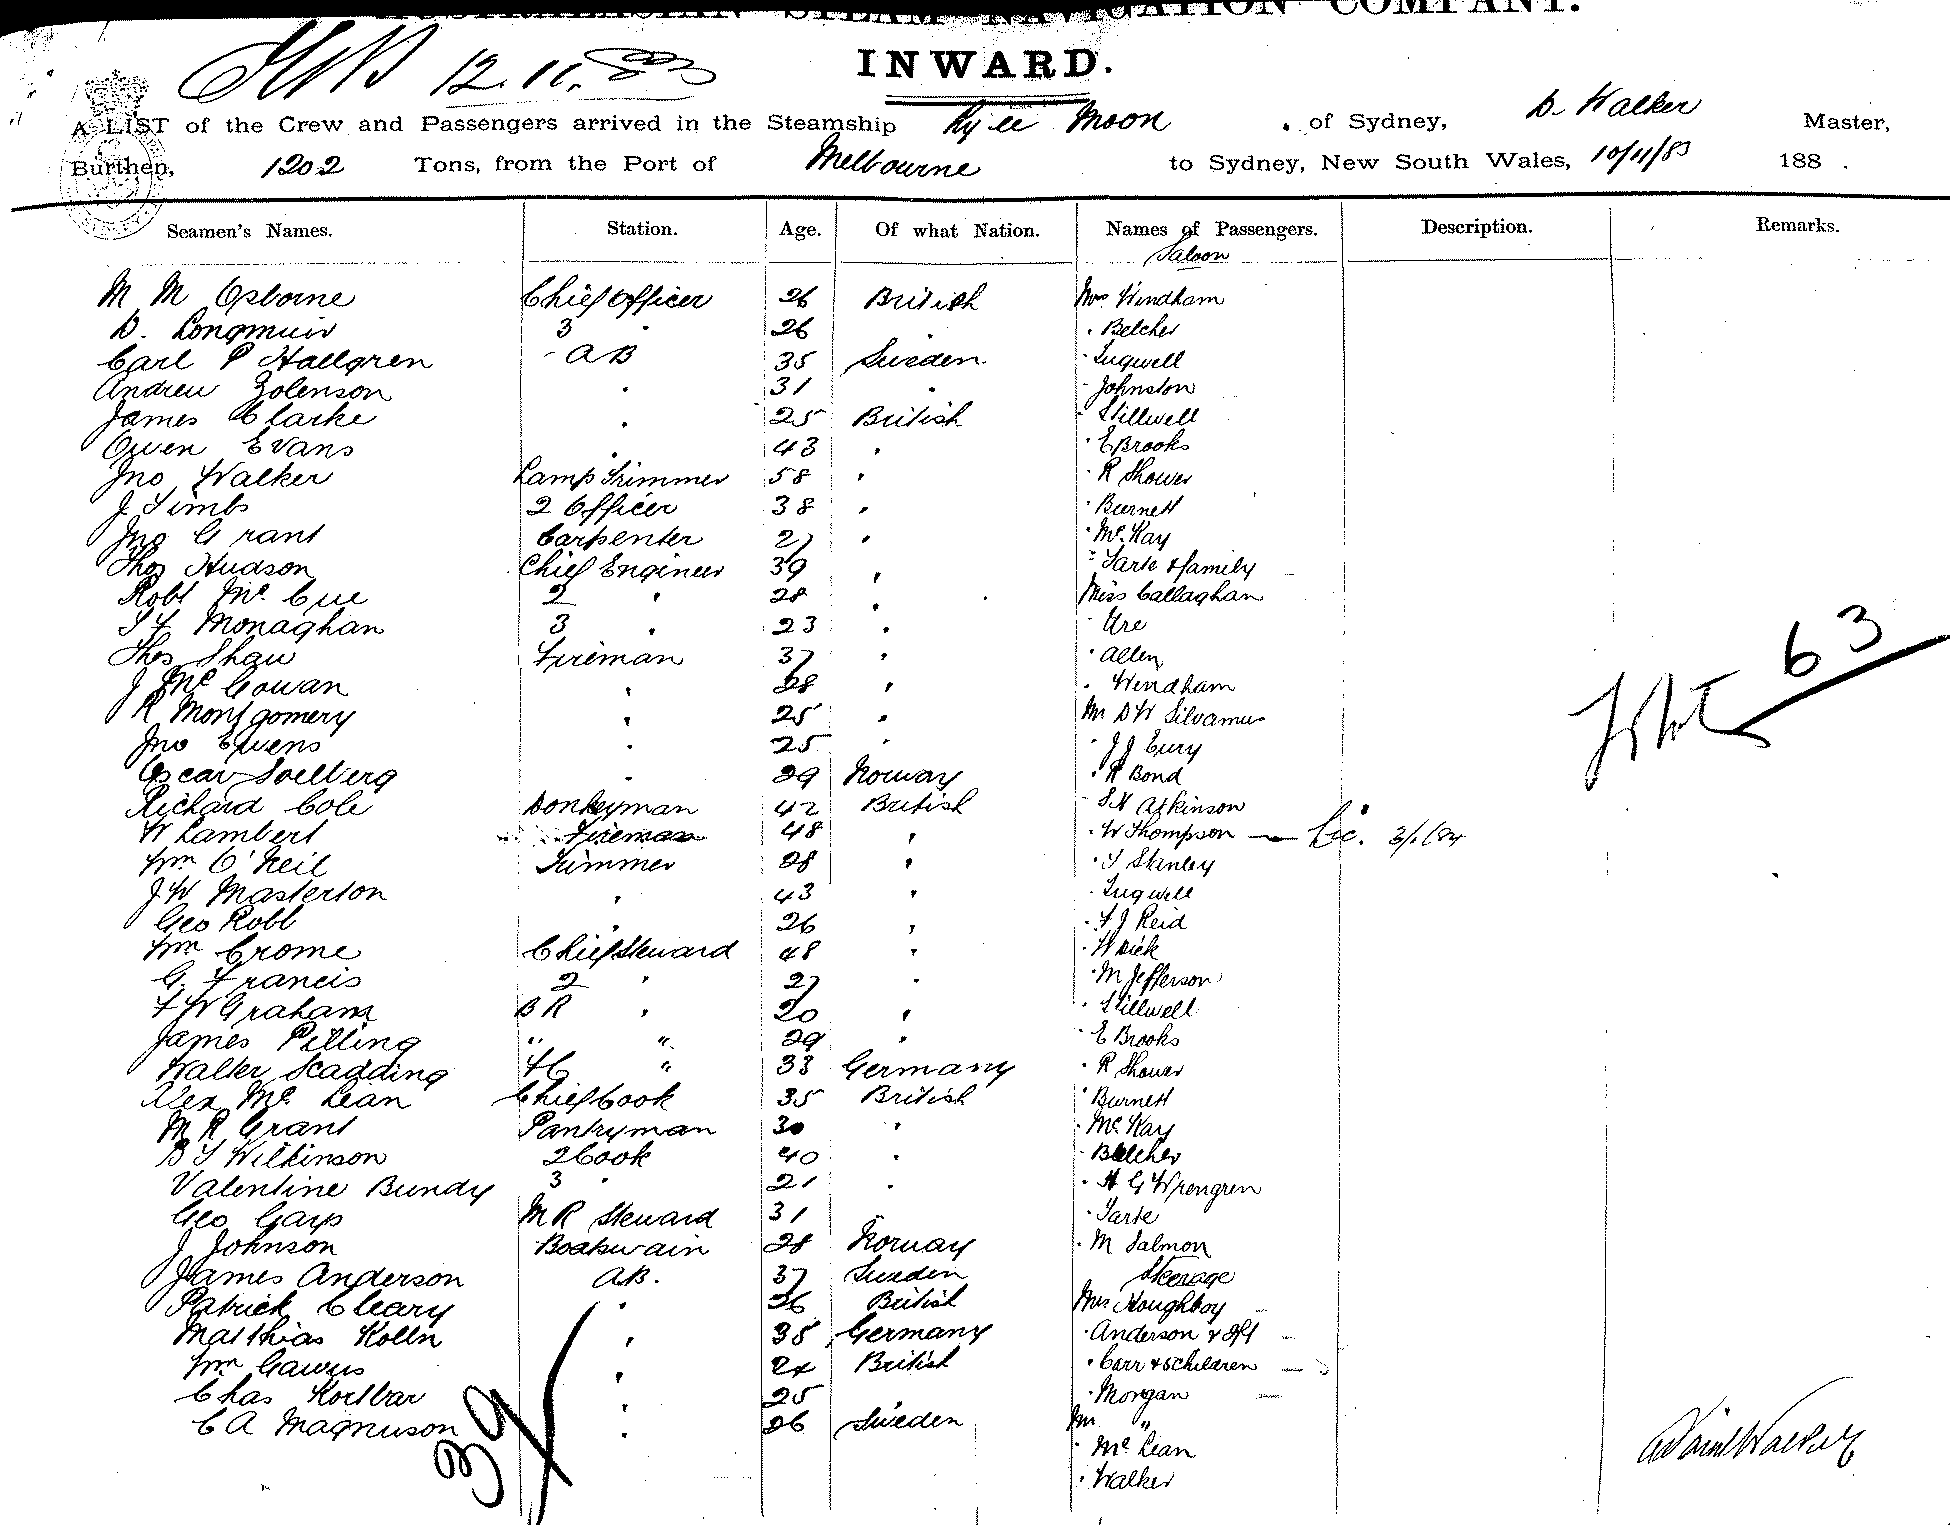 AUSTRALASIAN STEAM NAVIGATION COMPANY.
12.11.83
INWARD.
A LIST of the Crew and Passengers arrived in the Steamship Ly-ee Moon . of Sydney, D. Walker Master,
Burthen, 1202 Tons, from the Port of Melbourne to Sydney, New South Wales, 10/11/83 188 .
Seamen's Names. Station. Age. Of what Nation. Names of Passengers. Description. Remarks.
Saloon
M M Osborne Chief Officer 26 British Mrs Windham
D. Longmuir 3 " 26 " " Belcher
Carl P Hallgren AB 35 Sweden " Tugwell
Andrew Zolenson " 31 " " Johnston
James Clarke " 25 British " Stillwell
Owen Evans " 43 " " E Brooks
Jno Walker Lamp Trimmer 58 " " R Shower
J Timbs 2 Officer 38 " " Burnett
Jno Grant Carpenter 27 " " Mc Kay
Thos Hudson Chief Engineer 39 " " Tarte & family
Robt Mc Cue 2 " 28 " Miss Callaghan
T F Monaghan 3 " 23 " " Ure
Thos Shaw Fireman 37 " " Allen
J Mc Gowan " 28 " " Windham
R Montgomery " 25 " Mr D W Silvamus
Jno Ewens " 25 " " J J Eury
Oscar Solberg " 29 Norway " R Bond
Richard Cole Donkeyman 42 British " S H Atkinson
W Lambert Fireman 48 " " W Thompson — Lic. 3/1/84
Wm O'Neil Trimmer 28 " " T Stanley
J W Masterton " 43 " " Tugwell
Geo Robb " 26 " " F J Reid
Wm Crome Chief Steward 48 " " W Dick
G. Francis 2 " 27 " " M Jefferson
F W Graham B R " 20 " " Stillwell
James Pilling " " 29 " " E Brooks
Walter Scadding FC " 33 Germany " R Shower
Alex Mc Lean Chief Cook 35 British " Burnett
M R Grant Pantryman 30 " " Mc Kay
B T Wilkinson 2 Cook 40 " " Belcher
Valentine Bundy 3 " 21 " " A G Wrongren
Geo Garp M R Steward 31 " Tarte
J Johnson Boatswain 28 Norway " M Salmon
James Anderson AB. 37 Sweden Steerage
Patrick Cleary " 26 British Mrs Houghboy
Matthias Kolln " 38 Germany " Anderson & Inft
Wm Gawus " 24 British " Carr & 5 children
Chas Kortbar " 25 " Morgan
C A Magnuson " 26 Sweden Mr "
" Mc Lean
" Walker
39
63
David Walker